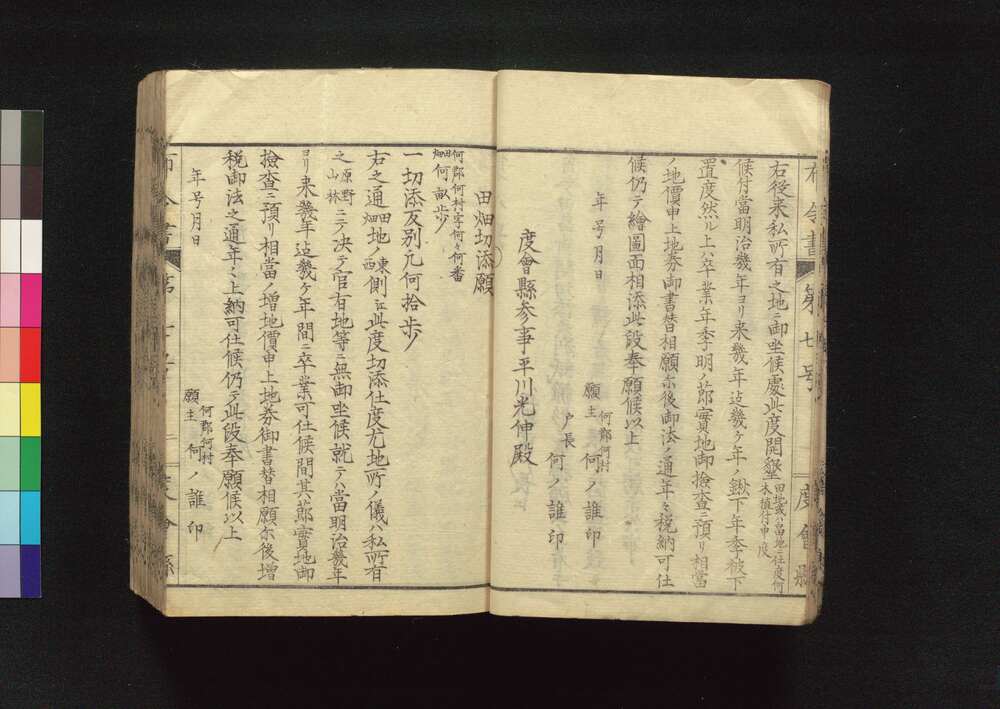 布令書 第七号 度會縣
右従来私所有之地ニ御坐候處此度開墾田地或ハ畠地ニ仕度何木植付申度
候付當明治幾年ヨリ来幾年迠幾ケ年ノ鍬下年季被下
置度然ル上ハ卒業年季明ノ莭實地御撿査ニ預リ相當
ノ地價申上地券御書替相願尓後御法ノ通年々税納可仕
候仍テ繪圖面相添此段奉願候以上
年号月日
何郡何村
願主 何ノ誰印
戸長 何ノ誰印
度會縣参事平川光伸殿
田畑切添願
何郡何村字何々何番
田畑何畝歩
一切添反別凡何拾歩
右之通田畑地ノ東西側江此度切添仕度尤地所ノ儀ハ私所有
之原野山林ニテ决テ官有地等ニ無御坐候就テハ當明治幾年
ヨリ来幾年迠幾ケ年間ニ卒業可仕候間其莭實地御
撿査ニ預リ相當ノ増地價申上地券御書替相願尓後増
税御法之通年々上納可仕候仍テ此段奉願候以上
年号月日
何郡何村
願主 何ノ誰印
布令書 第七号 二 度會縣